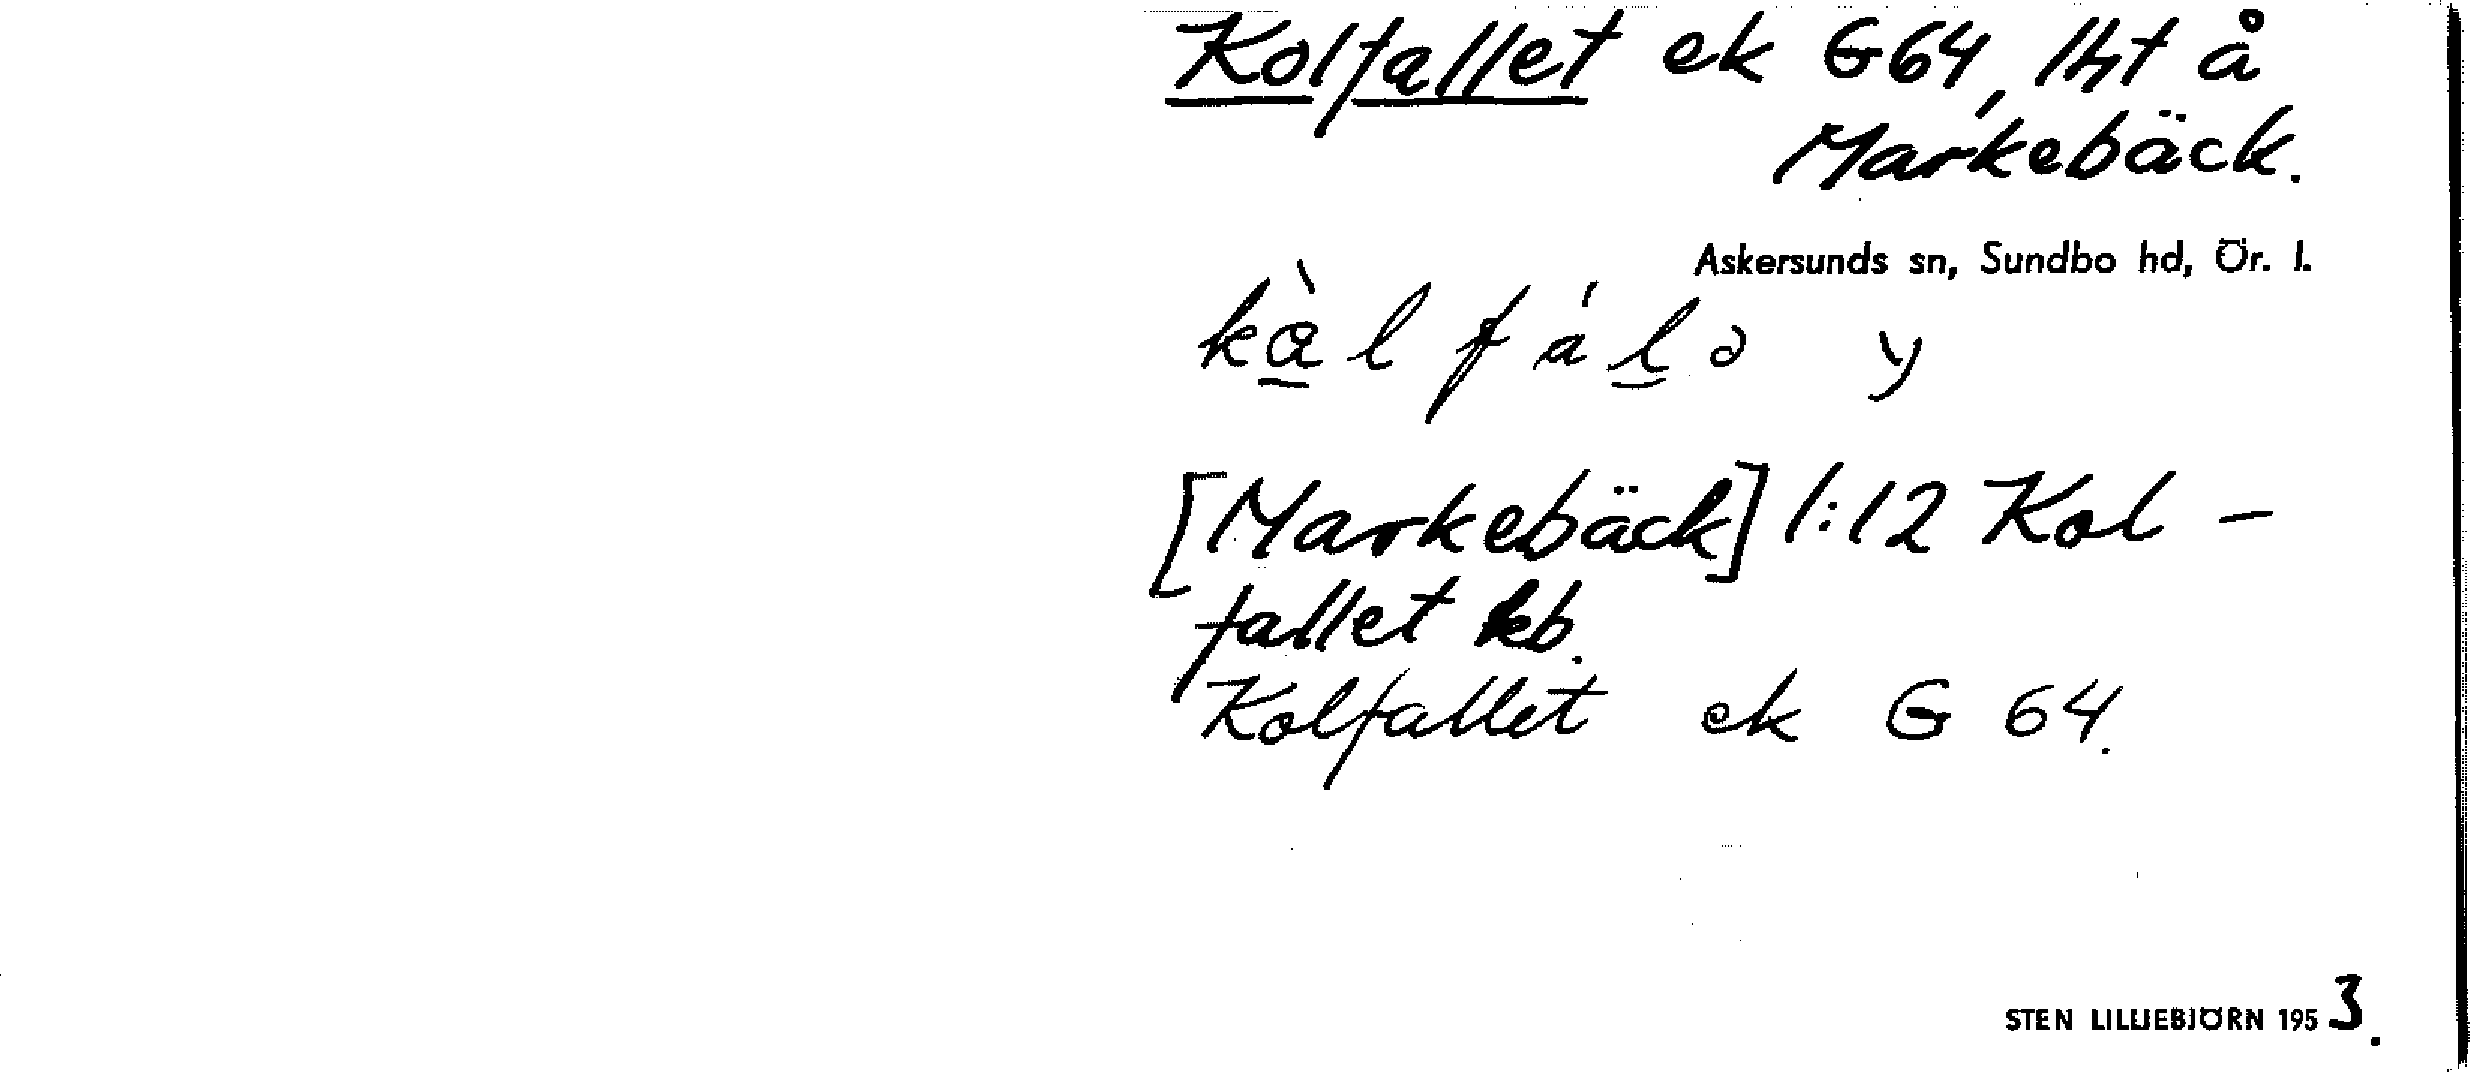 Kolfallet ek G64, lht å
Markebäck.
Askersunds sn, Sundbo hd, Ör. l.
[Markebäck] 1:12 Kol-
fallet kb.
Kolfallet ek G 64.
STEN LILLIEBJÖRN 1953.